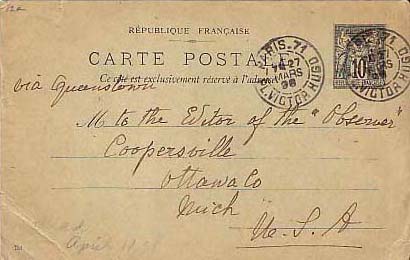 RÉPUBLIQUE FRANÇAISE
CARTE POSTALE
Ce côté est exclusivement réservé à l'adresse
PARIS_71
27
MARS
98
PL. VICTOR HUGO
10
via Queenstown
M to the Editor of the "Observer"
Coopersville
Ottawa Co
Mich
U. S. A
April